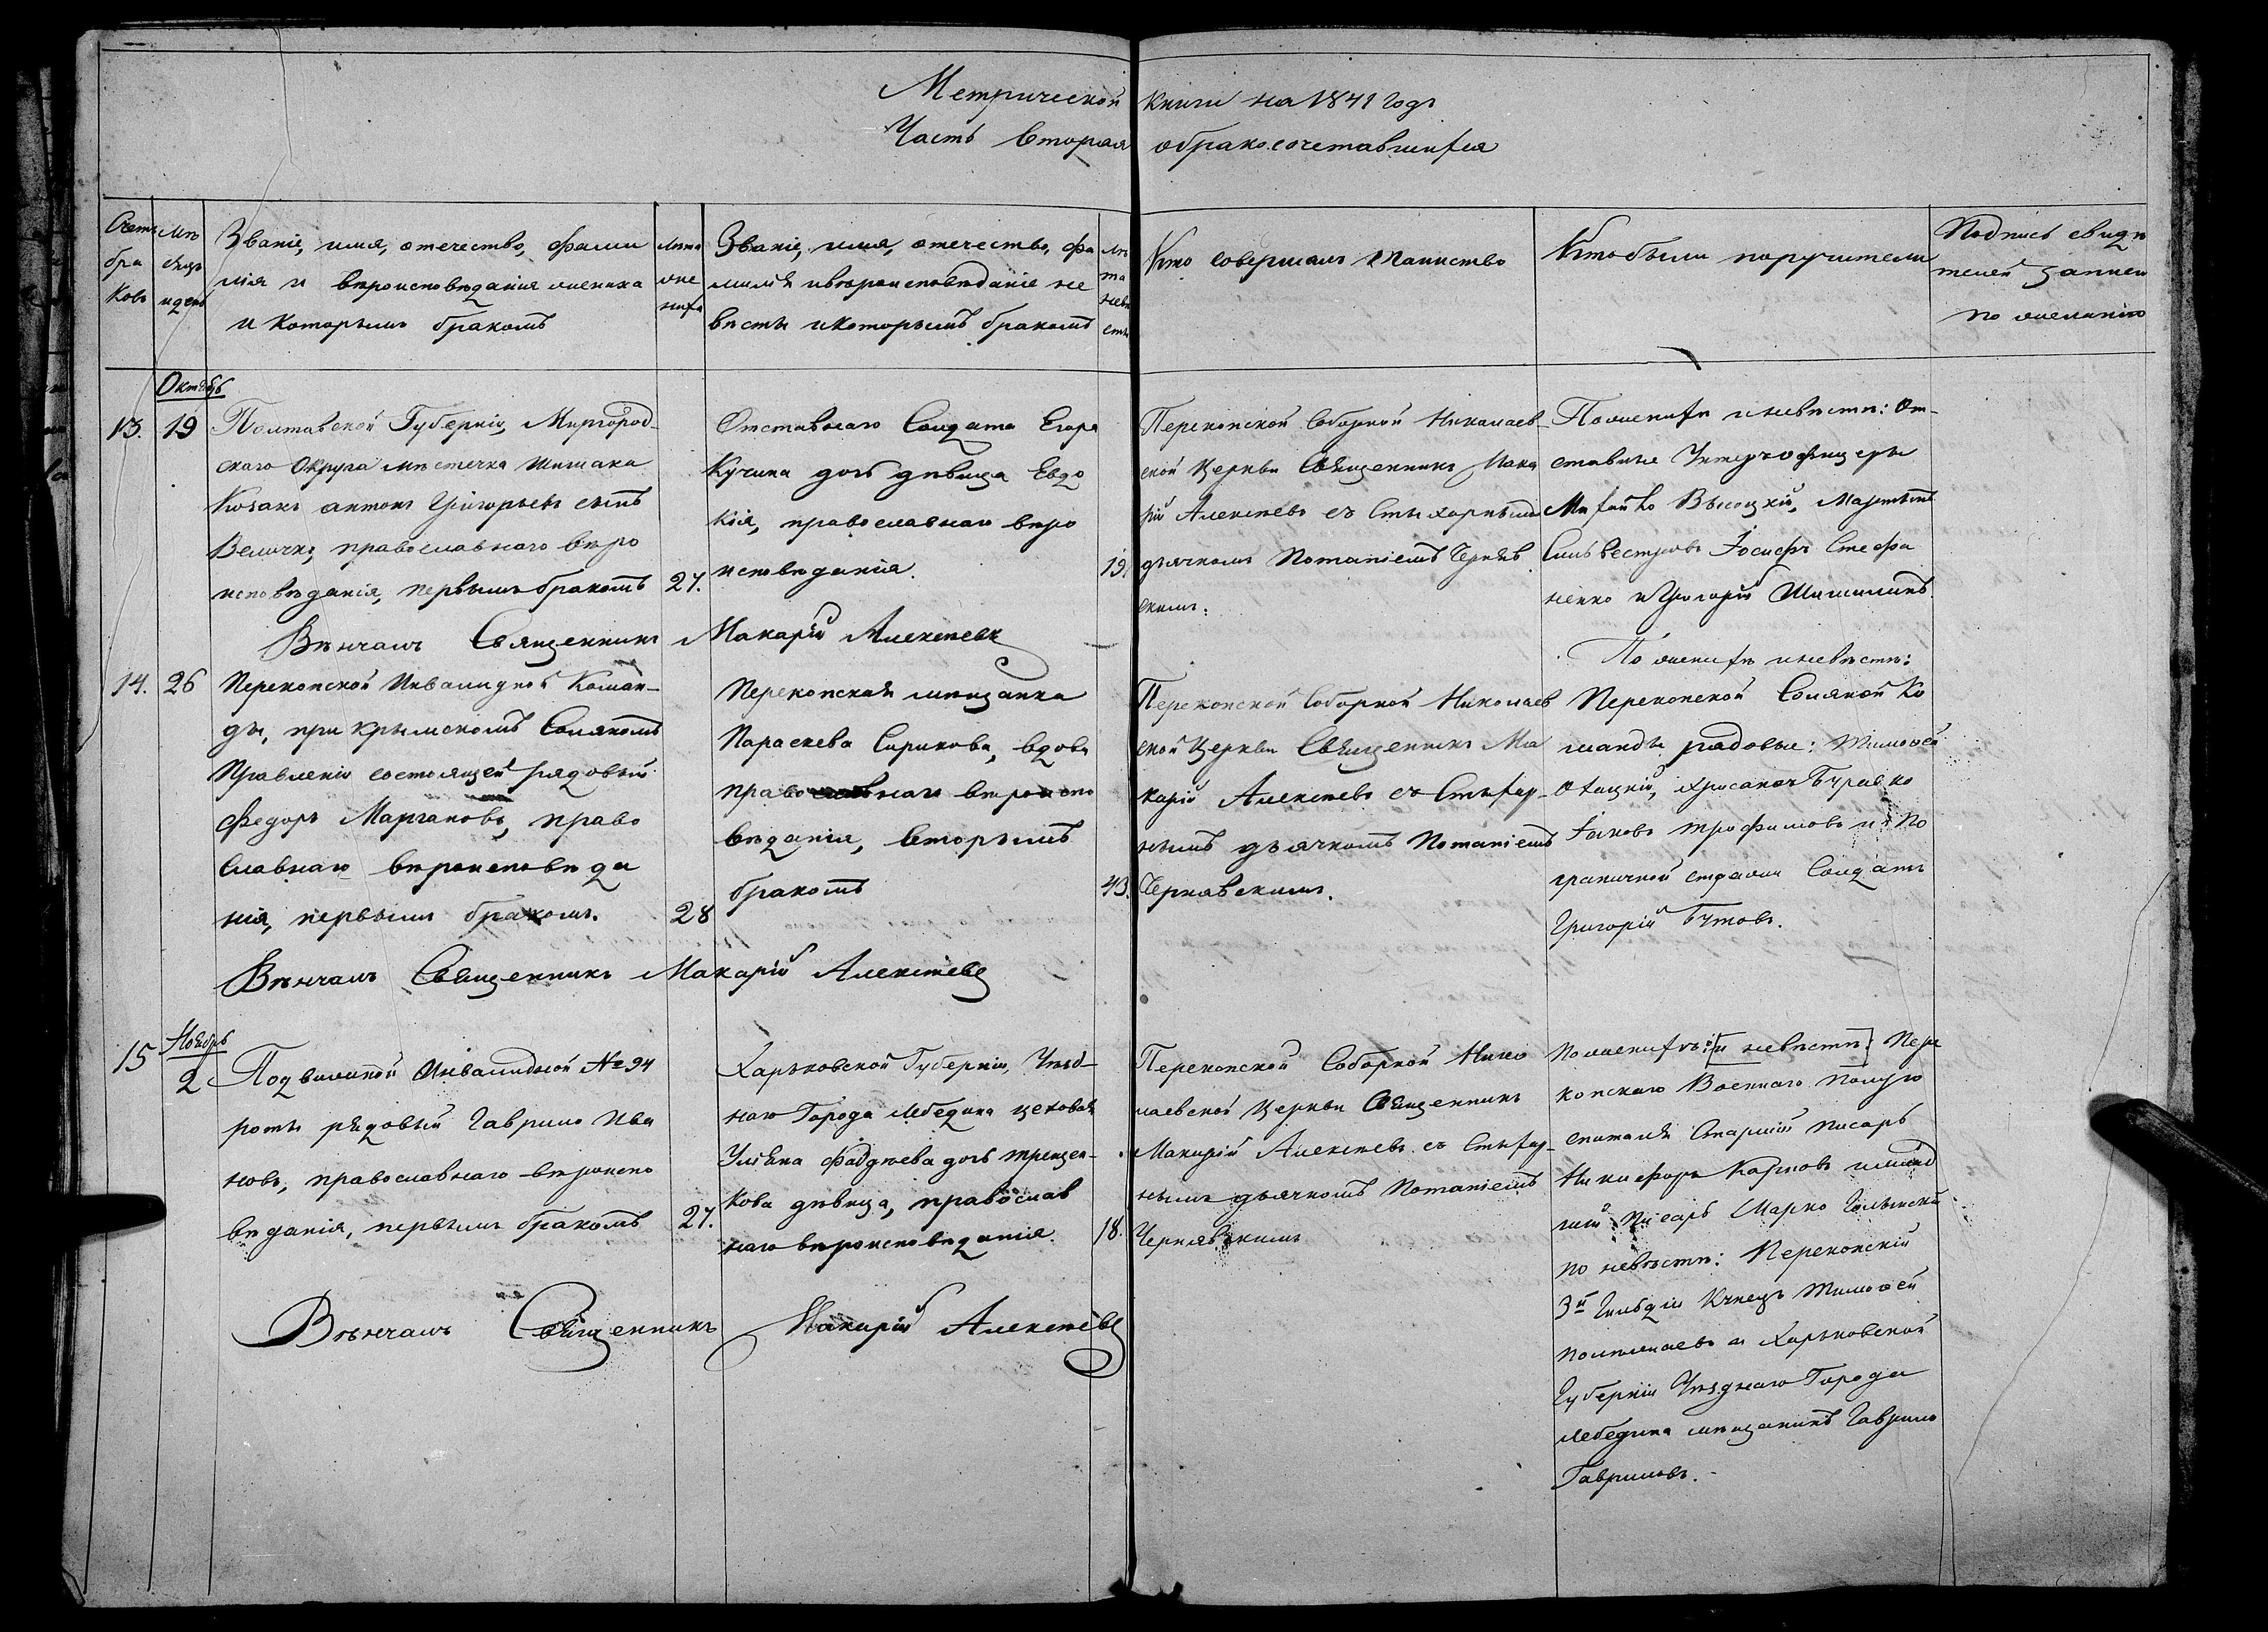 Метрической книги на 1841 годъ
Часть вторая о бракосочетавшихся
Счетъ
бра
ковъ
Мѣ
сяцъ
и день
Званіе, имя, отечество, фами
лія и вѣроисповѣданія жениха
и которымъ бракомъ
Лѣта
же
ниха
Званіе, имя, отечество, фа
милія и вѣроисповѣданіе не
вѣсты и которымъ бракомъ
лѣ
та
невѣ
сты
Кто совершалъ таинство
Кто были поручители
Подпись свидѣ
телей записи
по желанію
Октябрь
13.
19
Полтавской Губерніи, Миргород-
скаго Округа мѣстечка Шишака
Козакъ антонъ Григорьевъ сынъ
Величко, православнаго вѣро
исповѣданія, первымъ бракомъ
27.
Отставнаго Солдата Егора
Кучина дочь дѣвица Евдо
кія, православнаго вѣро
исповѣданія.
19.
Перекопской Соборной Николаев-
ской Церкви Священникъ Мака
рій Алексѣевъ съ Стихарнымъ
дьячкомъ Потапіемъ Черняв
скимъ.
По женихѣ и невѣстѣ: От-
ставные Унтеръ офицеры
Михайло Высоцкій, Мартынъ
Сильвестровъ Іосифъ Стефа
ненко и Григорій Шишкинъ.
Вѣнчалъ Священникъ Макарій Алексѣевъ
14.
26
Перекопской Инвалидной Коман-
ды, при Крымскомъ Соляномъ
Правленіи состоящей рядовый
Федоръ Маргановъ, право
славнаго вѣроисповѣда
нія, первымъ бракомъ.
28
Перекопская мѣщанка
Параскева Сирикова, вдова
православнаго вѣроиспо
вѣданія, вторымъ
бракомъ
43.
Перекопской Соборной Николаев
ской Церкви Священникъ Ма
карій Алексѣевъ съ Стихар-
нымъ дьячкомъ Потапіемъ
Чернявскимъ.
По женихѣ и невѣстѣ:
Перекопской Соляной Ко
манды рядовые: Тимофей
Хрисанъ Буравко
Іаковъ Трофимовъ и По
граничной стражи Солдатъ
Григорій Бутовъ.
Вѣнчалъ Священникъ Макарій Алексѣевъ
Ноябрь
15
2
Подвижной Инвалидной № 94
роты рядовый Гаврило Ива
новъ, православнаго вѣроиспо
вѣданія, первымъ бракомъ
27.
Харьковской Губерніи, Уѣзд-
наго Города Лебедина цеховая
Уліяна Фаддѣева дочь
кова дѣвица, православ
наго вѣроисповѣданія.
18.
Перекопской Соборной Нико
лаевской Церкви Священникъ
Макарій Алексѣевъ съ Стихар-
нымъ дьячкомъ Потапіемъ
Чернявскимъ
По женихѣ: [и невѣстѣ] Пере
копскаго Военнаго Полуго
спиталя Старшій писарь
Никифоръ Карповъ и млад
шій Писарь Марко
по невѣстѣ: Перекопскій
3й Гильдіи Купецъ Тимофей
и Харьковской
Губерніи Уѣзднаго Города
Лебедина мѣщанинъ Гаврило
Гавриловъ.
Вѣнчалъ Священникъ Макарій Алексѣевъ